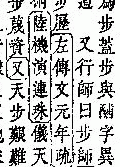 步蓋步與酺字異
又行師曰步師
步歷左傳文元年疏
陸機演連珠儀天
步蔑資又天步艱難